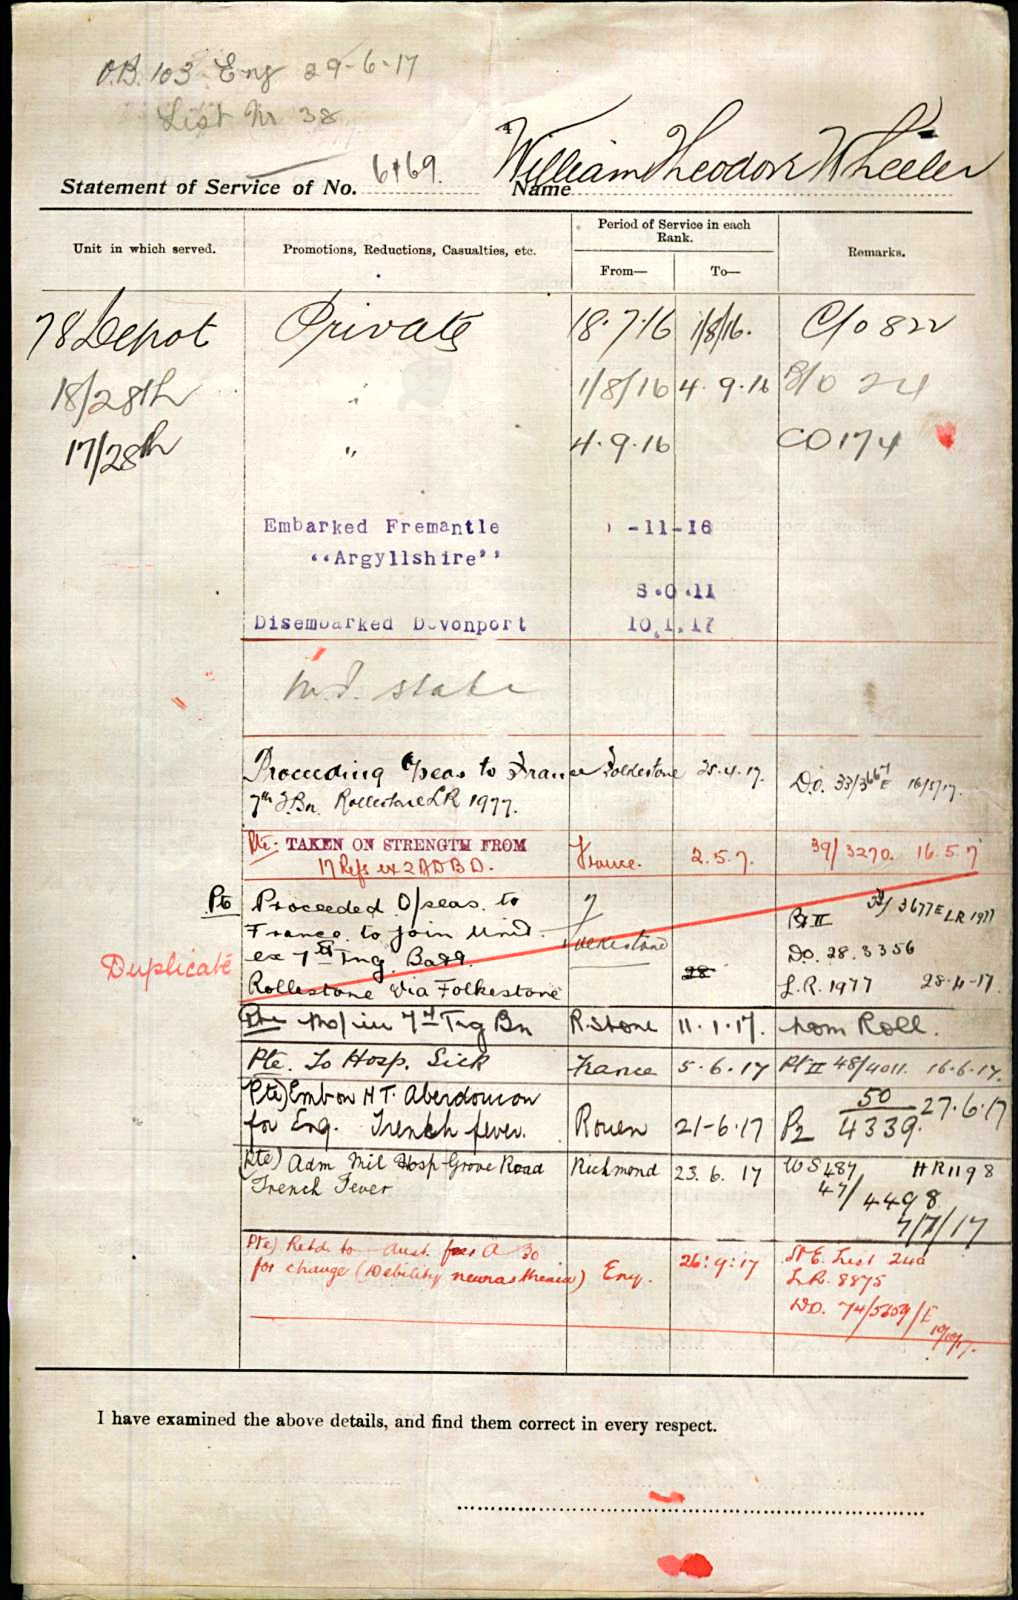 O.B. 103 Eng 29-6-17
List Nr 38
Statement of Service of No. 6469. Name William Theodore Wheeler
Unit in which served. Promotions, Reductions, Casualties, etc. Period of Service in each Rank. Remarks.
From— To—
78 Depot Private 18.7.16 1/8/16. C/o 822
18/28th " 1/8/16 4.9.16 24
17/28th " 4.9.16 CO 174
Embarked Fremantle -11-16
"Argyllshire"
Disembarked Devonport 10.1.17
state
Proceeding O/seas to France Folkestone 25.4.17. D.O. 33/3667E 16/5/17.
7th T.Bn. Rollestone LR 1977.
Pte. TAKEN ON STRENGTH FROM France. 2.5.7. 39/3270. 16.5.7
17 Refs ex 2 ADBD.
Pte Proceeded O/seas. to 3677E LR 1977
France to join Unit. Folkestone Pt II
Duplicate ex 7th Tng. Batt. 28 DO. 28.3356
Rollestone via Folkestone L.R. 1977 28-4-17.
Pte m/in 7th Trg Bn R.Stone 11.1.17. Nom Roll.
Pte. To Hosp. Sick France 5.6.17 Pt II 48/4011. 16.6.17.
(Pte) Emb on HT. Aberdonian 50 27.6.17
for Eng. Trench fever. Rouen 21-6-17 P2 4339.
(Pte) Adm Mil Hosp Grove Road Richmond 23.6.17 WS 487 HR 1198
Trench Fever 47/4498
7/7/17
(Pte) Retd. to Aust. for A 30
for change (Debility neurasthenia) Eng. 26:9:17 List 24a
L.R. 8875
DO. 74/5659/E
10/10/17.
I have examined the above details, and find them correct in every respect.